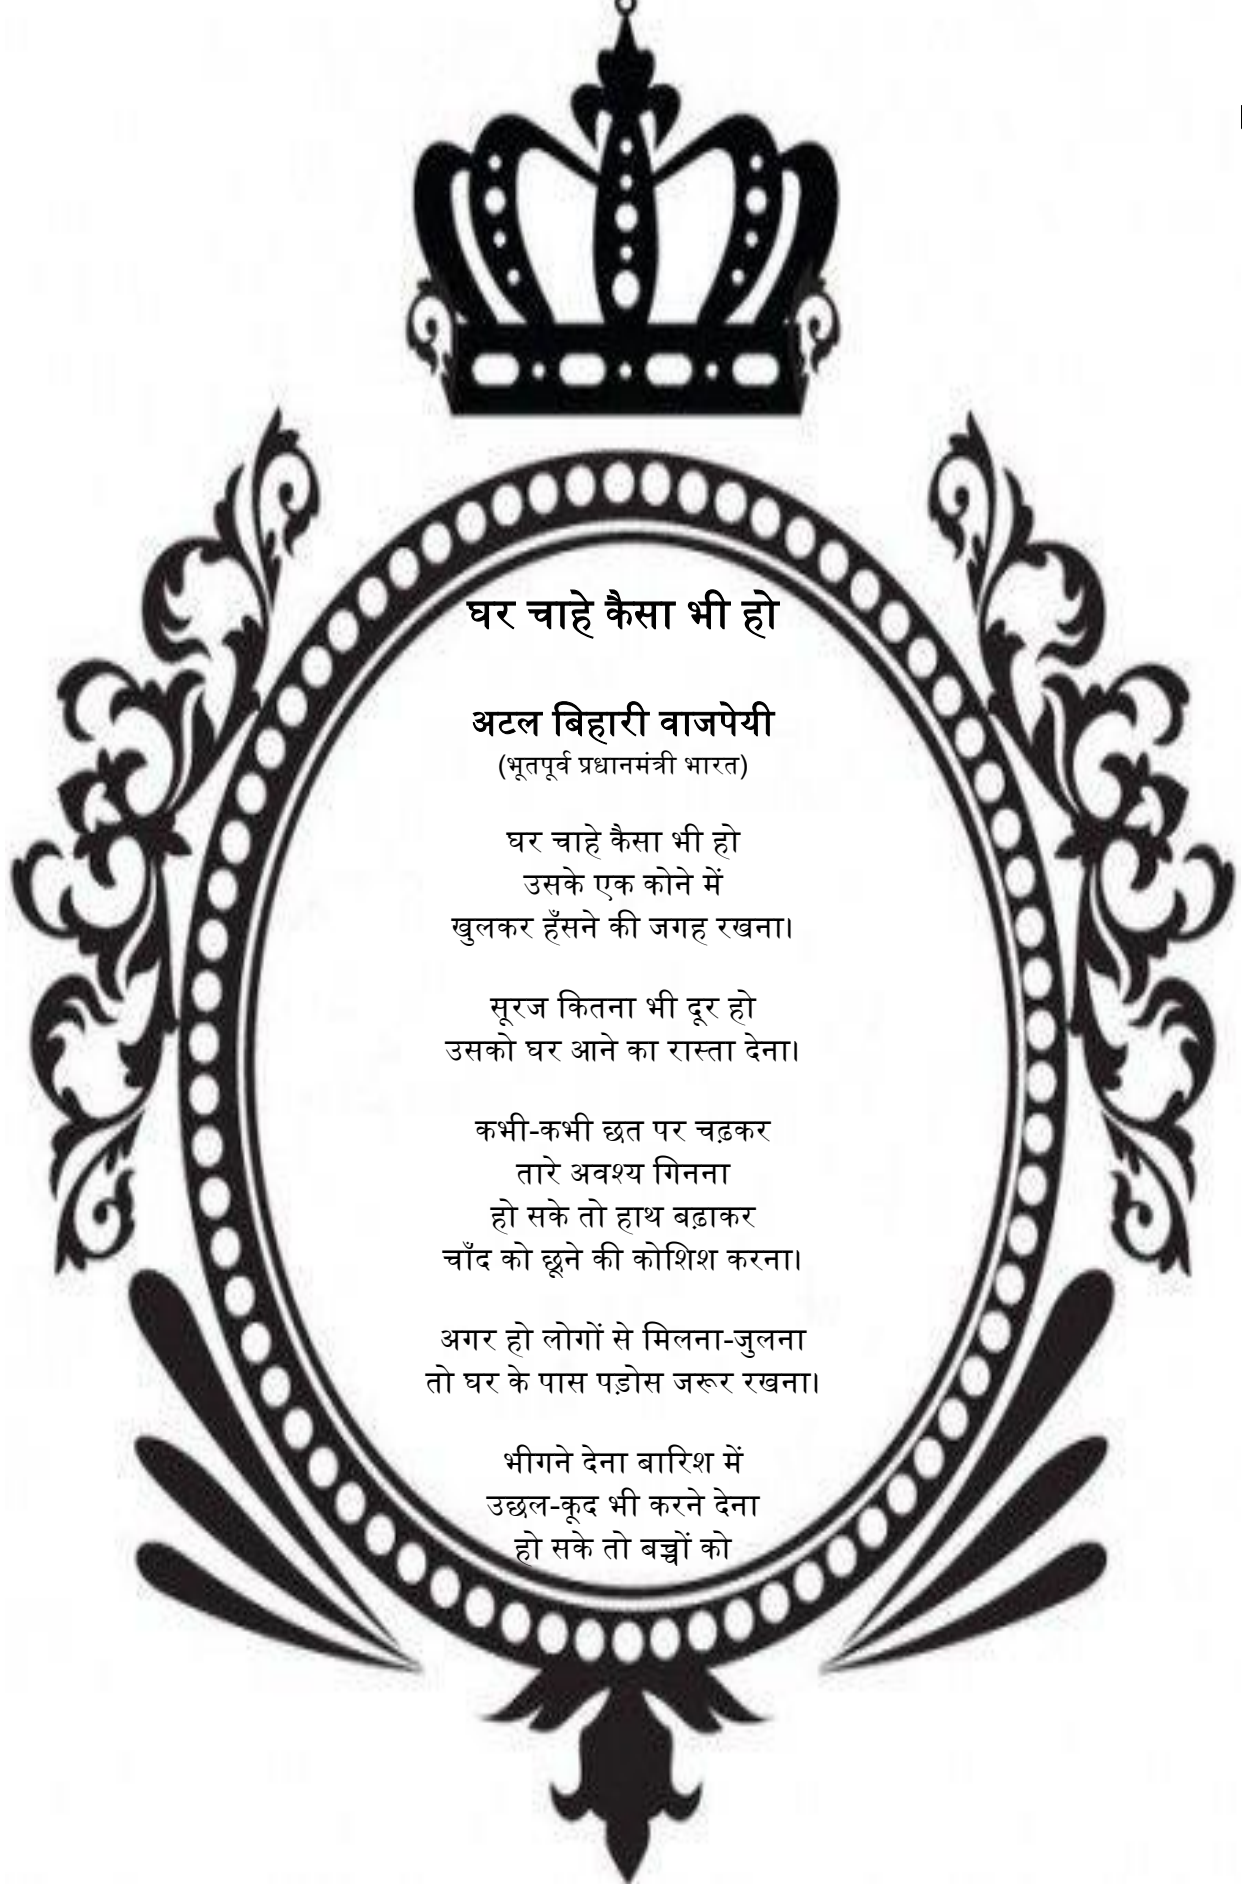 घर चाहे कैसा भी हो
अटल बिहारी वाजपेयी
(भूतपूर्व प्रधानमंत्री भारत)
घर चाहे कैसा भी हो
उसके एक कोने में
खुलकर हँसने की जगह रखना।
सूरज कितना भी दूर हो
उसको घर आने का रास्ता देना।
कभी-कभी छत पर चढ़कर
तारे अवश्य गिनना
हो सके तो हाथ बढ़ाकर
चाँद को छूने की कोशिश करना।
अगर हो लोगों से मिलना-जुलना
तो घर के पास पड़ोस जरूर रखना।
भीगने देना बारिश में
उछल-कूद भी करने देना
हो सके तो बच्चों को